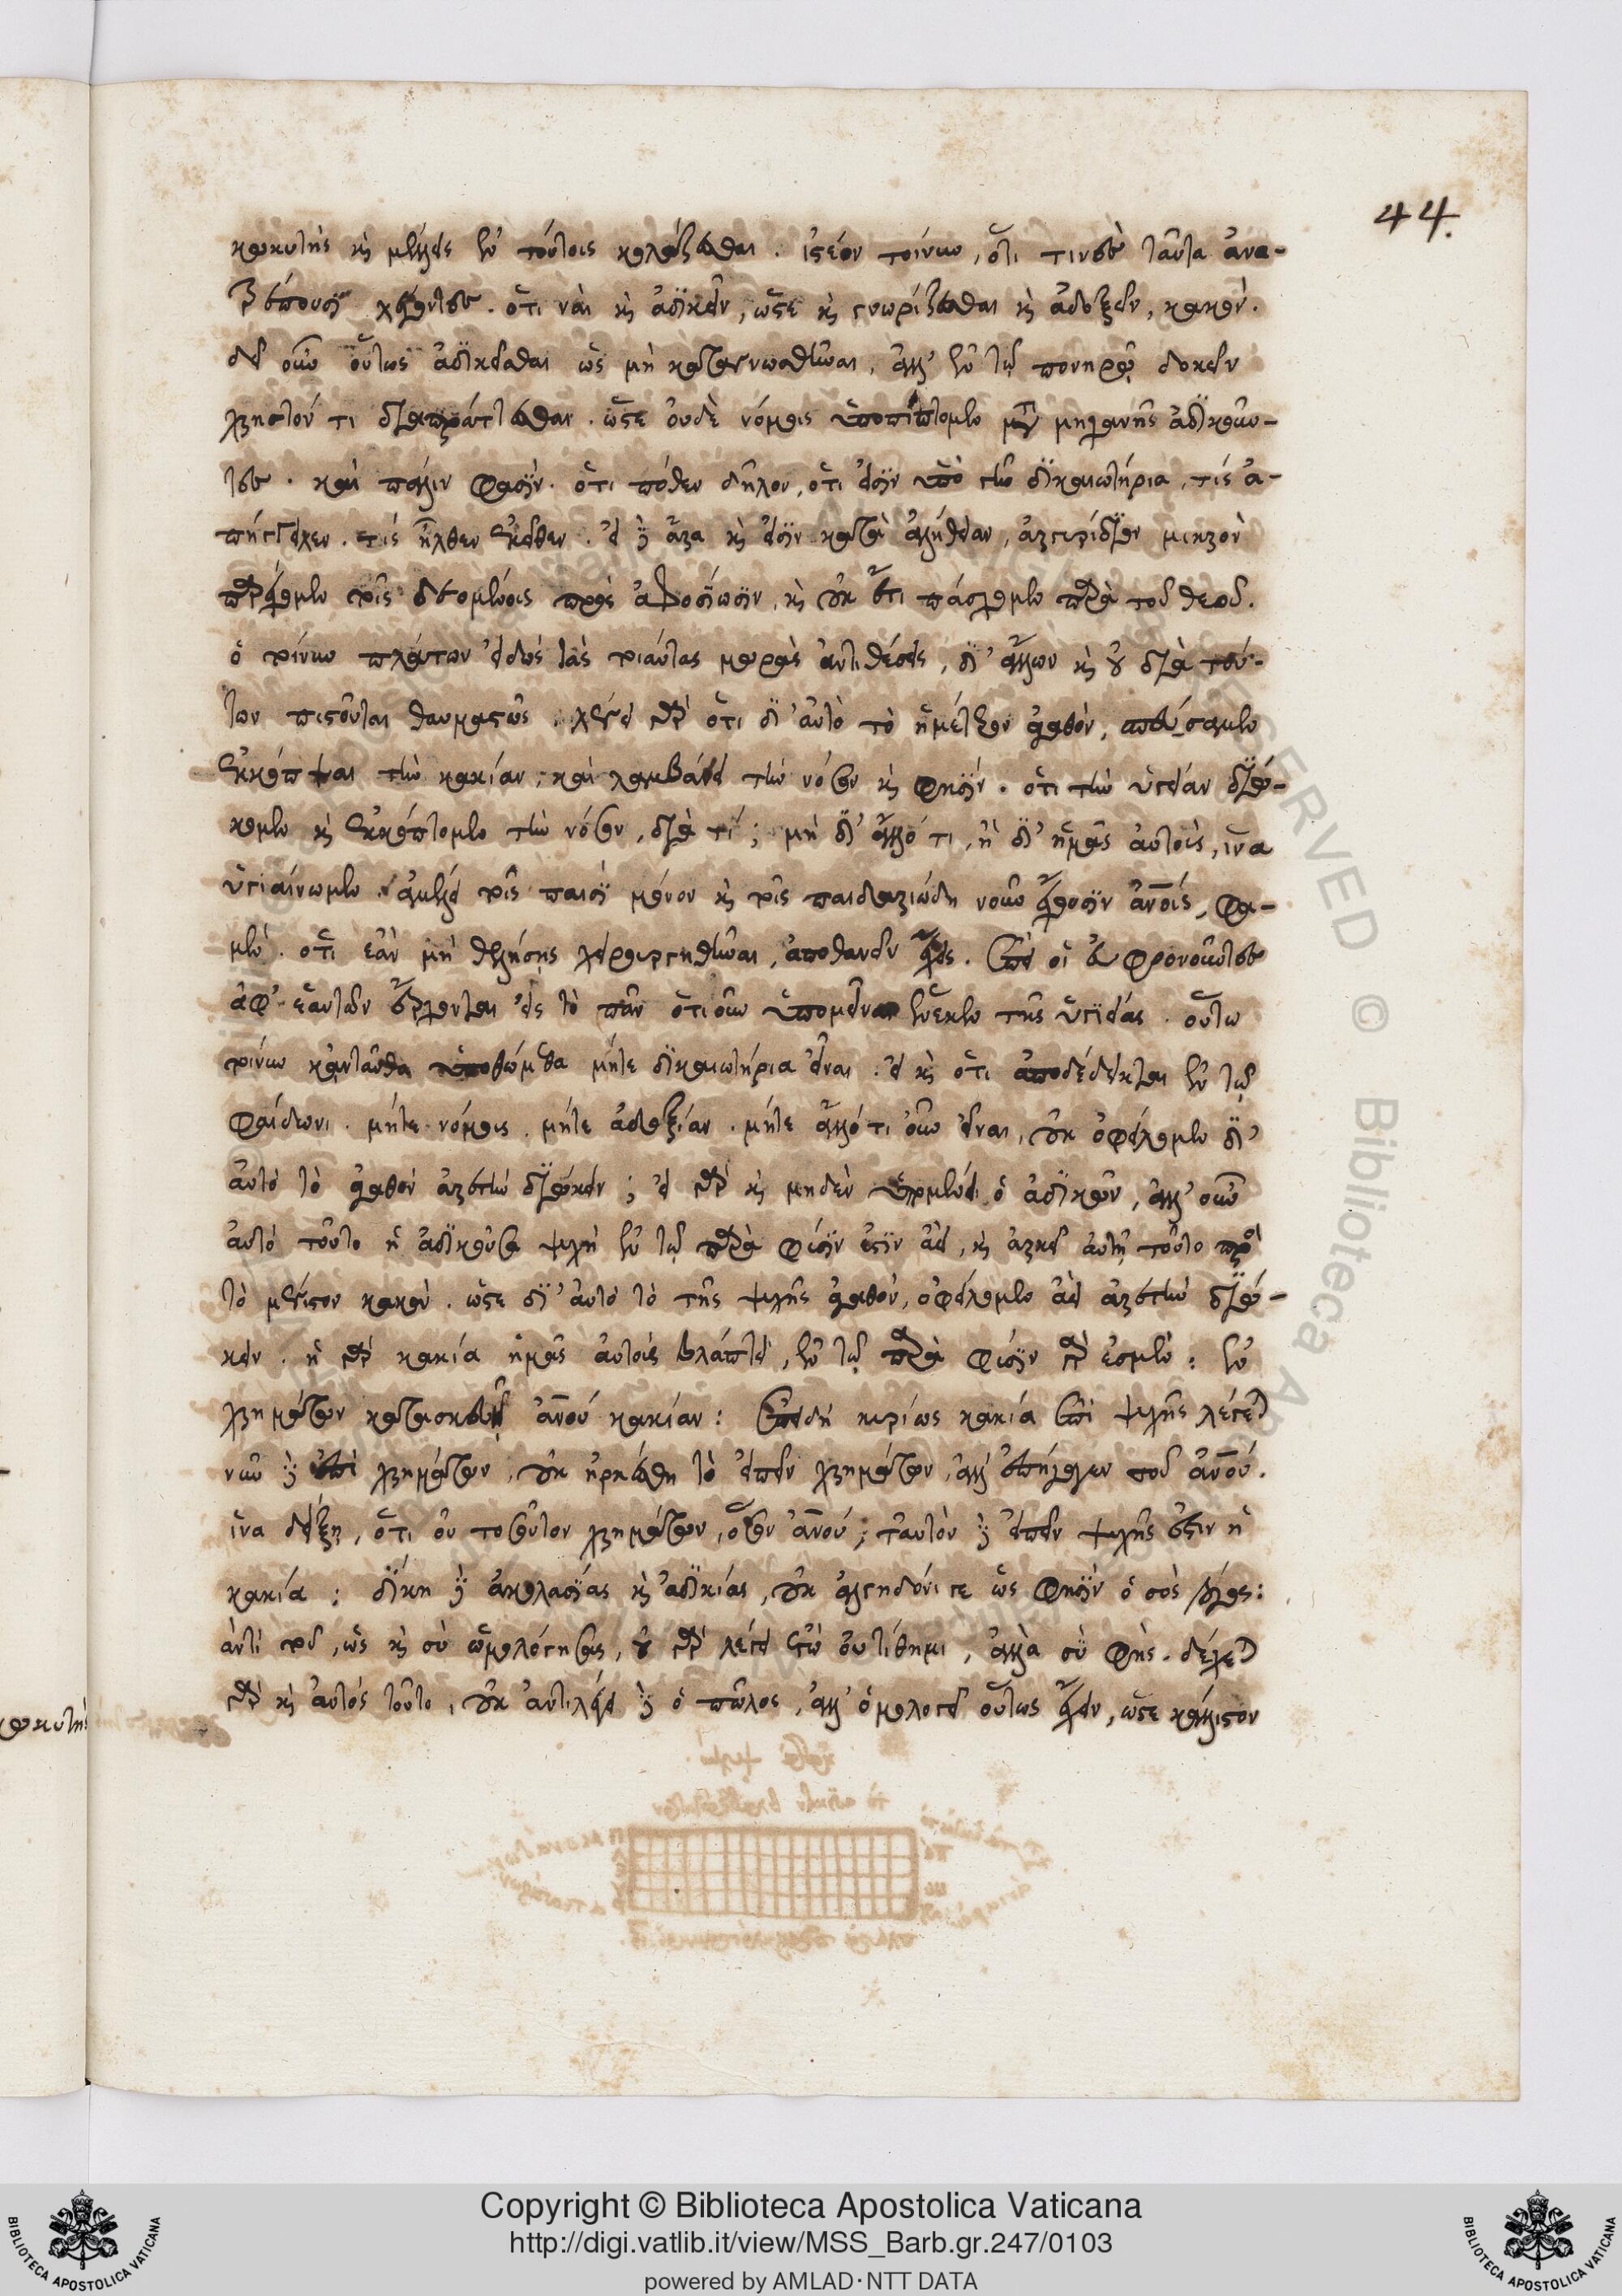 44.
κωκυτὸς καὶ μέλλεις ἐν τούτοις κολάζεσθαι. ἰστέον τοίνυν, ὅτι τινὲς ταῦτα ἀνα-
τρέπουσι λέγοντες. ὅτι ναὶ καὶ ἀδικεῖν, ὥστε καὶ γνωρίζεσθαι καὶ ἀδοξεῖν, κακόν.
δεῖ οὖν οὕτως ἀδικεῖσθαι ὡς μὴ καταγνωσθῆναι, ἀλλ' ἐν τῷ πονηρῷ δοκεῖν
χρηστόν τι διαπράττεσθαι. ὥστε οὐδὲ νόμοις ὑποπίπτομεν μετὰ μηχανῆς ἀδικοῦν-
τες. καὶ πάλιν φασίν. ὅτι πόθεν δῆλον, ὅτι εἰσὶν ὑπὸ γῆν δικαιωτήρια, τίς ἀ-
πήγγειλεν. τίς ἦλθεν ἐκεῖθεν. εἰ δὲ ἄρα καὶ εἰσὶν κατὰ ἀλήθειαν, ἀργυρίδιον μικρὸν
παρέχομεν τοῖς δεομένοις πρὸς ἀφοσίωσιν, καὶ οὐκ ἔτι πάσχομεν παρὰ τοῦ θεοῦ.
ὁ τοίνυν πλάτων εἰδὼς τὰς τοιαύτας μωρὰς ἀντιθέσεις, δι' ἄλλων καὶ οὐ διὰ τού-
των πιστοῦται θαυμαστῶς. λέγει γὰρ ὅτι δι' αὐτὸ τὸ ἡμέτερον ἀγαθόν,
ἐκκόψαι τὴν κακίαν. καὶ λαμβάνει τὴν νόσον καὶ φησίν. ὅτι τὴν ὑγείαν διώ-
κομεν καὶ ἐκκόπτομεν τὴν νόσον, διὰ τί; μὴ δι' ἄλλό τι, ἢ δι' ἡμᾶς αὐτούς, ἵνα
ὑγιαίνωμεν. ἀμέλει τοῖς παισὶ μόνον καὶ τοῖς παιδαριώδη νοῦν ἔχουσιν ἀνοις, φα-
μέν. ὅτι ἐὰν μὴ θελήσῃς χειρουργηθῆναι, ἀποθανεῖν ἔχεις. ἐπεὶ οἱ εὖ φρονοῦντες
ἀφ' ἑαυτῶν ἔρχονται εἰς τὸ πᾶν ὁτιοῦν ὑπομεῖναι ἕνεκεν τῆς ὑγιείας. οὕτω
τοίνυν κἀνταῦθα ὑποθώμεθα μήτε δικαιωτήρια εἶναι. εἰ καὶ ὅτι ἀποδέδεικται ἐν τῷ
φαίδωνι. μήτε νόμοις. μήτε ἀδοξίαν. μήτε ἄλλό τι οὖν εἶναι, οὐκ ὀφείλομεν δι'
αὐτὸ τὸ ἀγαθὸν ἀρετὴν διώκειν; εἰ γὰρ καὶ μηδὲν ὑπομένει ὁ ἀδικῶν, ἀλλ' οὖν
αὐτὸ τοῦτο ἡ ἀδικοῦσα ψυχὴ ἐν τῷ παρὰ φύσιν ἐστὶν ἀεί, καὶ ἀρκεῖ αὐτῇ τοῦτο πρὸς
τὸ μέγιστον κακόν. ὥστε δι' αὐτὸ τὸ τῆς ψυχῆς ἀγαθόν, ὀφείλομεν ἀεὶ ἀρετὴν διώ-
κειν. ἡ γὰρ κακία ἡμᾶς αὐτοὺς βλάπτει, ἐν τῷ παρὰ φύσιν γὰρ ἐσμέν: ἐν
χρημάτων κατασκευῇ ἀνου κακίαν: ἐπειδὴ κυρίως κακία ἐπὶ ψυχῆς λέγεται
νῦν δὲ ἐπὶ χρημάτων, οὐκ ἠρκέσθη τὸ εἰπεῖν χρημάτων, ἀλλ' ἐπήγαγεν τοῦ ἀνου.
ἵνα δείξῃ, ὅτι οὐ τοσοῦτον χρημάτων, ὅσον ἀνου; ταυτὸν δὲ εἰπεῖν ψυχῆς ἐστιν ἡ
κακία: δίκη δὲ ἀκολασίας καὶ ἀδικίας, οὐκ ἀλγηδόνι γε ὡς φησὶν ὁ σὸς λόγος:
ἀντὶ τοῦ, ὡς καὶ σὺ ὡμολόγησας, οὐ γὰρ λέγει ἐγὼ συντίθημι, ἀλλὰ σὺ φῄς. δέχεται
γὰρ καὶ αὐτὸς τοῦτο, οὐκ ἀντιλέγει δὲ ὁ πῶλος, ἀλλ' ὁμολογεῖ οὕτως ἔχειν, ὥστε κάλλιστον
Copyright © Biblioteca Apostolica Vaticana
http://digi.vatlib.it/view/MSS_Barb.gr.247/0103
powered by AMLAD·NTT DATA
BIBLIOTECA APOSTOLICA VATICANA
BIBLIOTECA APOSTOLICA VATICANA